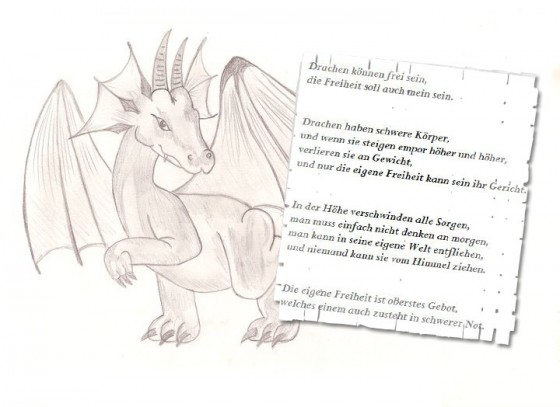 Drachen können frei sein,
die Freiheit soll auch mein sein.
Drachen haben schwere Körper,
und wenn sie steigen empor höher und höher,
verlieren sie an Gewicht,
und nur die eigene Freiheit kann sein ihr Gericht.
In der Höhe verschwinden alle Sorgen,
man muss einfach nicht denken an morgen,
man kann in seine eigene Welt entfliehen,
und niemand kann sie vom Himmel ziehen.
Die eigene Freiheit ist oberstes Gebot,
welches einem auch zusteht in schwerer Not.